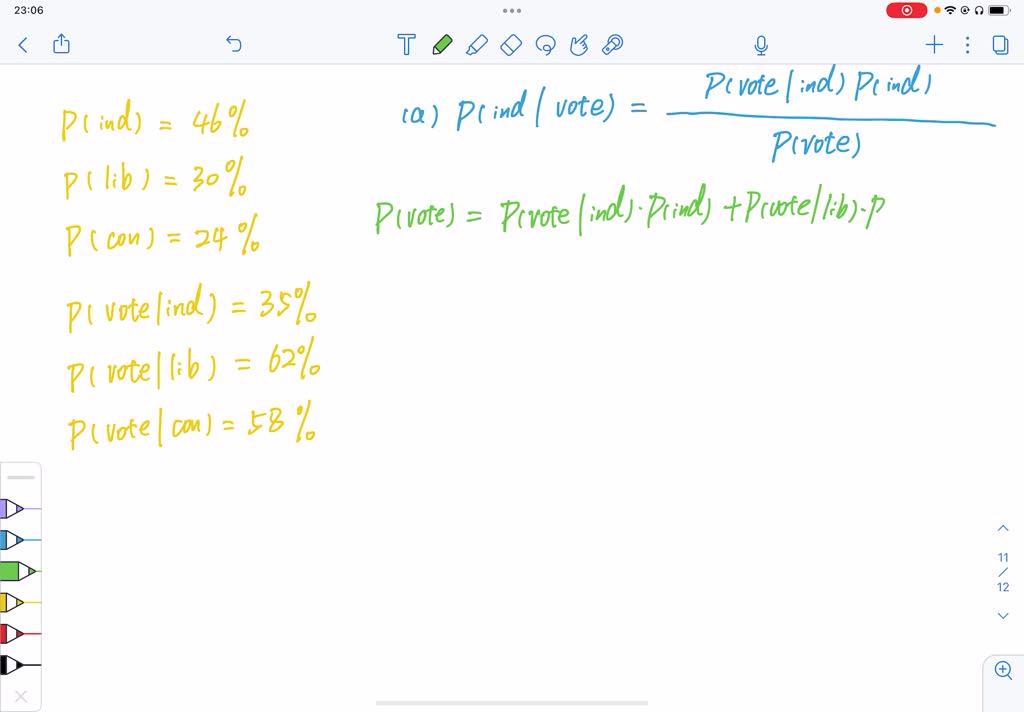 23:06
P(ind) = 46%
P(lib) = 30%
P(con) = 24%
P(vote|ind) = 35%
P(vote|lib) = 62%
P(vote|con) = 58%
(a) P(ind|vote) = P(vote|ind) P(ind)
P(vote)
P(vote) = P(vote|ind)·P(ind) + P(vote|lib)·P
11
/
12